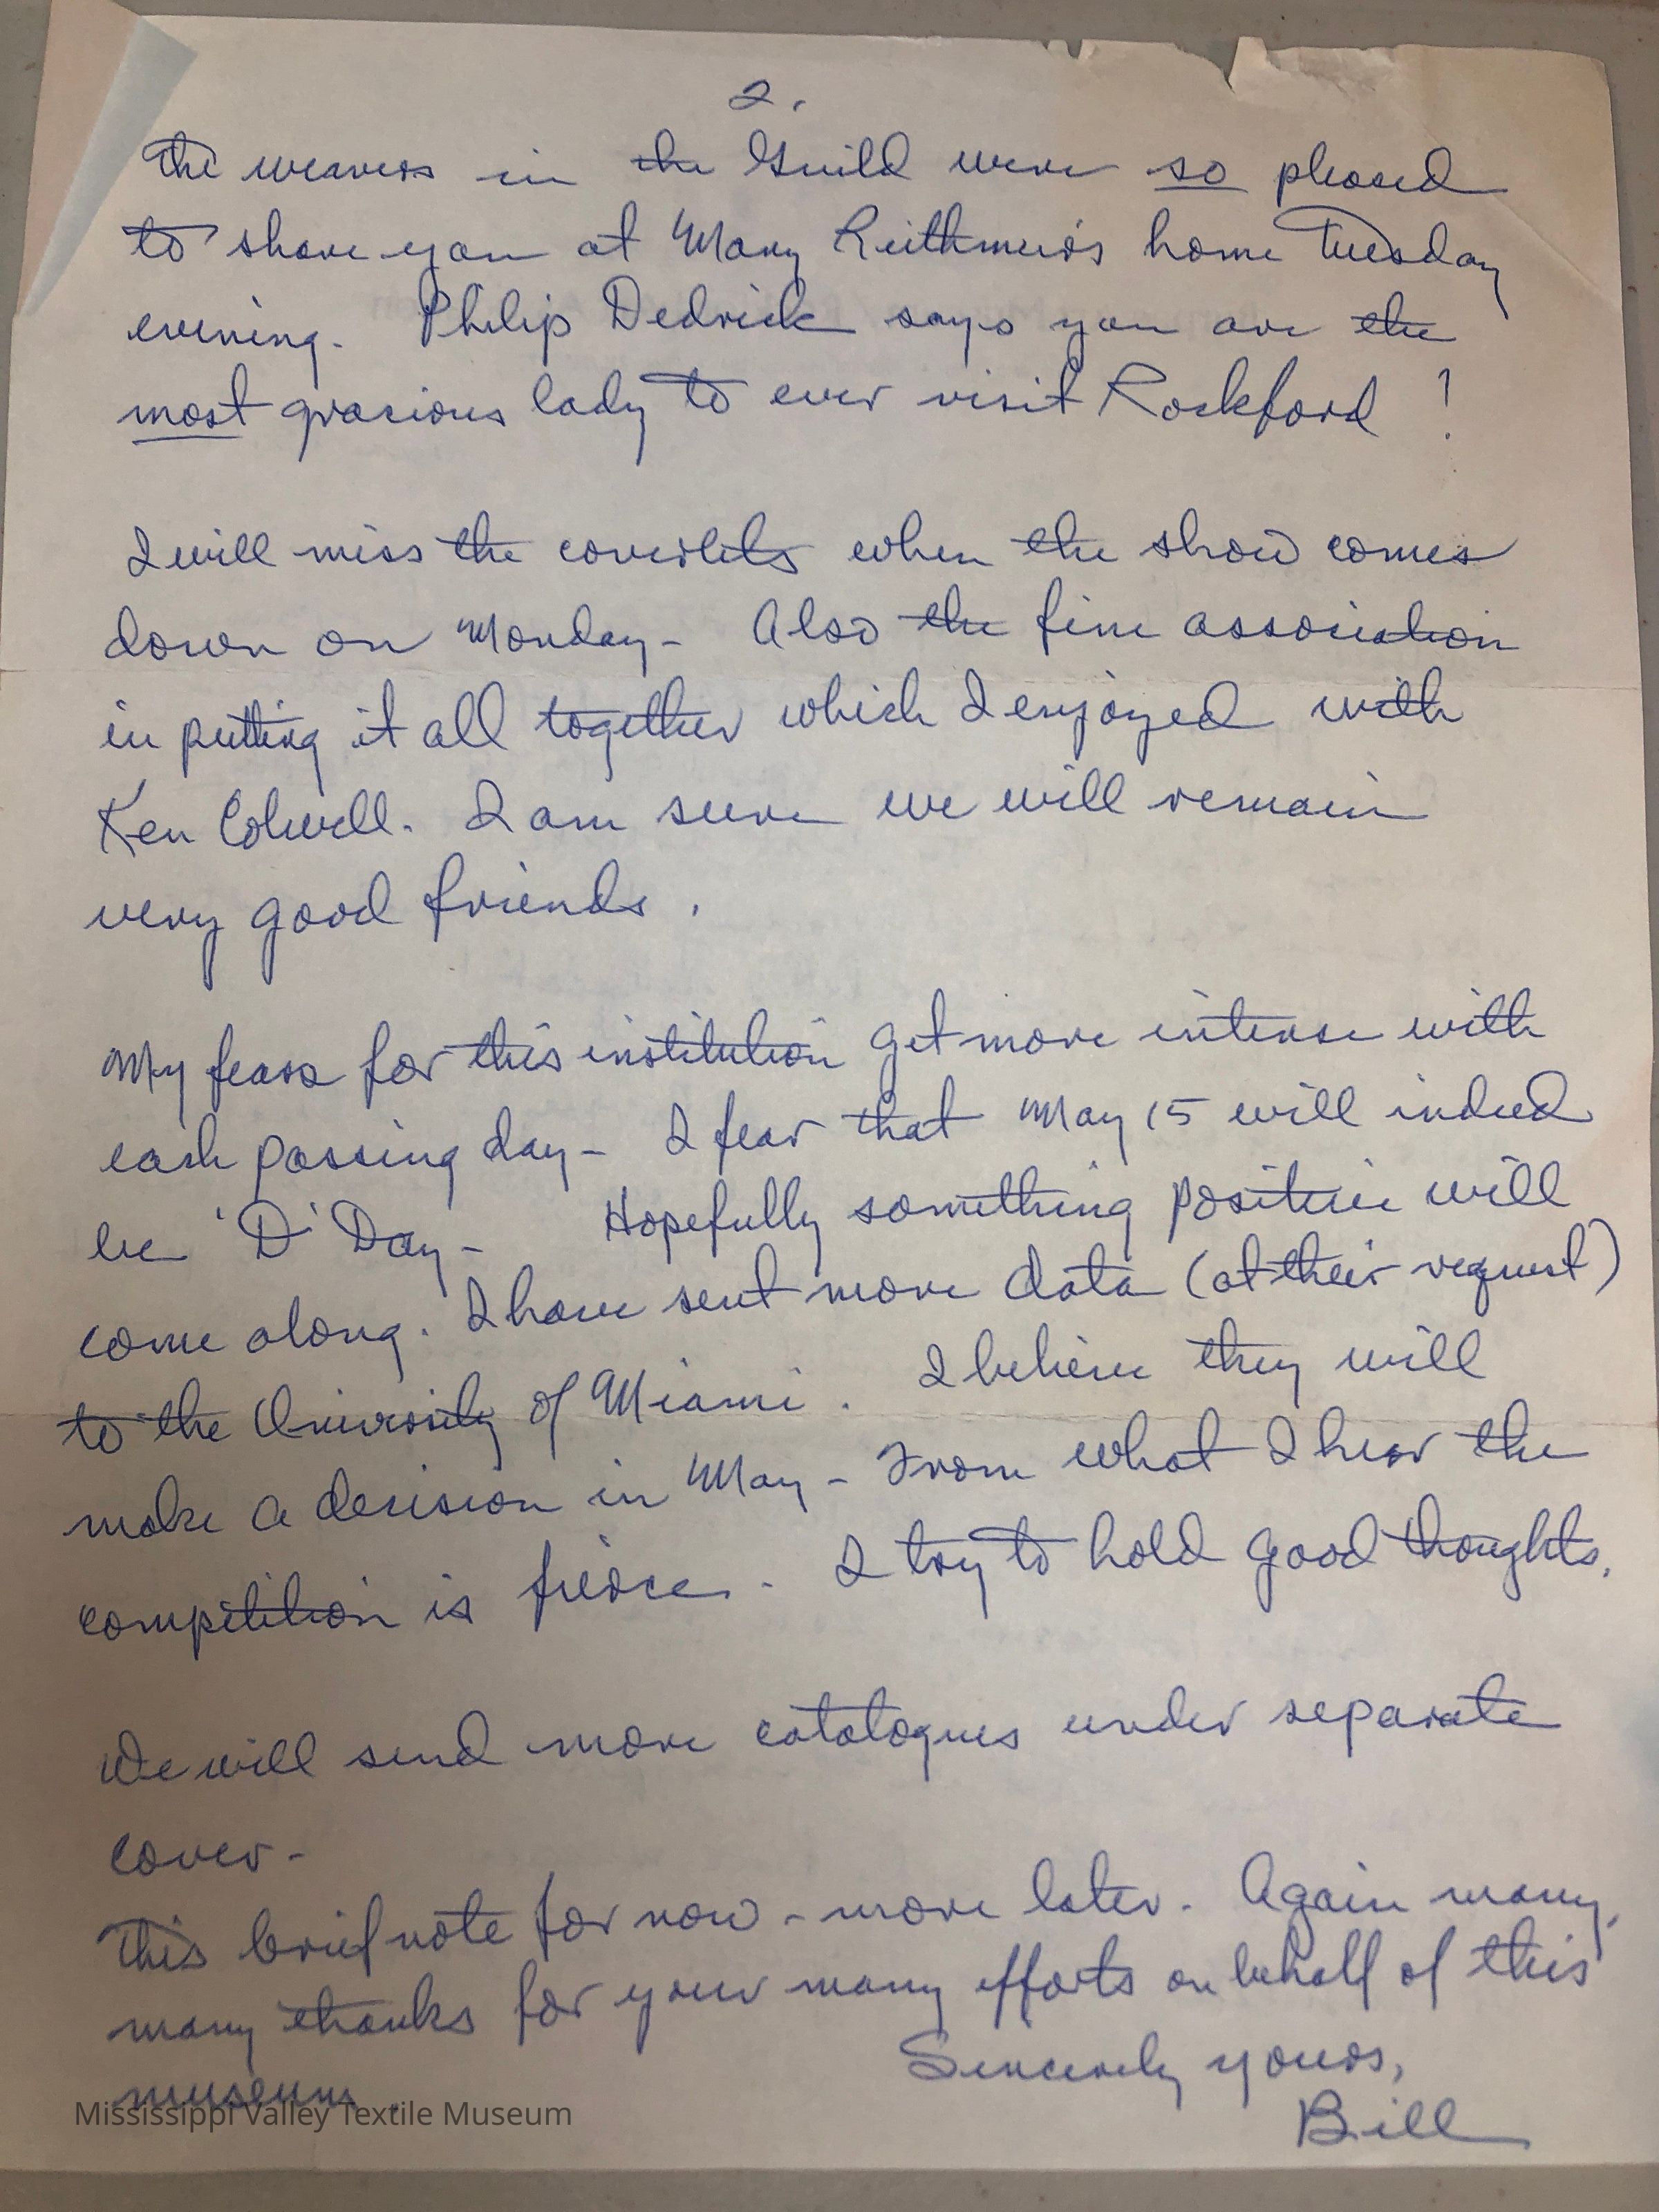 2.
The weavers in the Guild were so pleased
to share you at Mary Reithmeir's home Tuesday
evening. Philip Dedrick says you are the
most gracious lady to ever visit Rockford !
I will miss the coverlets when the show comes
down on Monday - Also the fine association
in putting it all together which I enjoyed with
Ken Colwell. I am sure we will remain
very good friends.
My fears for this institution get more intense with
each passing day - I fear that May 15 will indeed
be 'D' Day - Hopefully something positive will
come along. I have sent more data (at their request)
to the University of Miami. I believe they will
make a decision in May - From what I hear the
competition is fierce. I try to hold good thoughts.
We will send more catalogues under separate
cover -
This brief note for now - more later. Again many,
many thanks for your many efforts on behalf of this
museum.
Sincerely yours,
Bill
Mississippi Valley Textile Museum